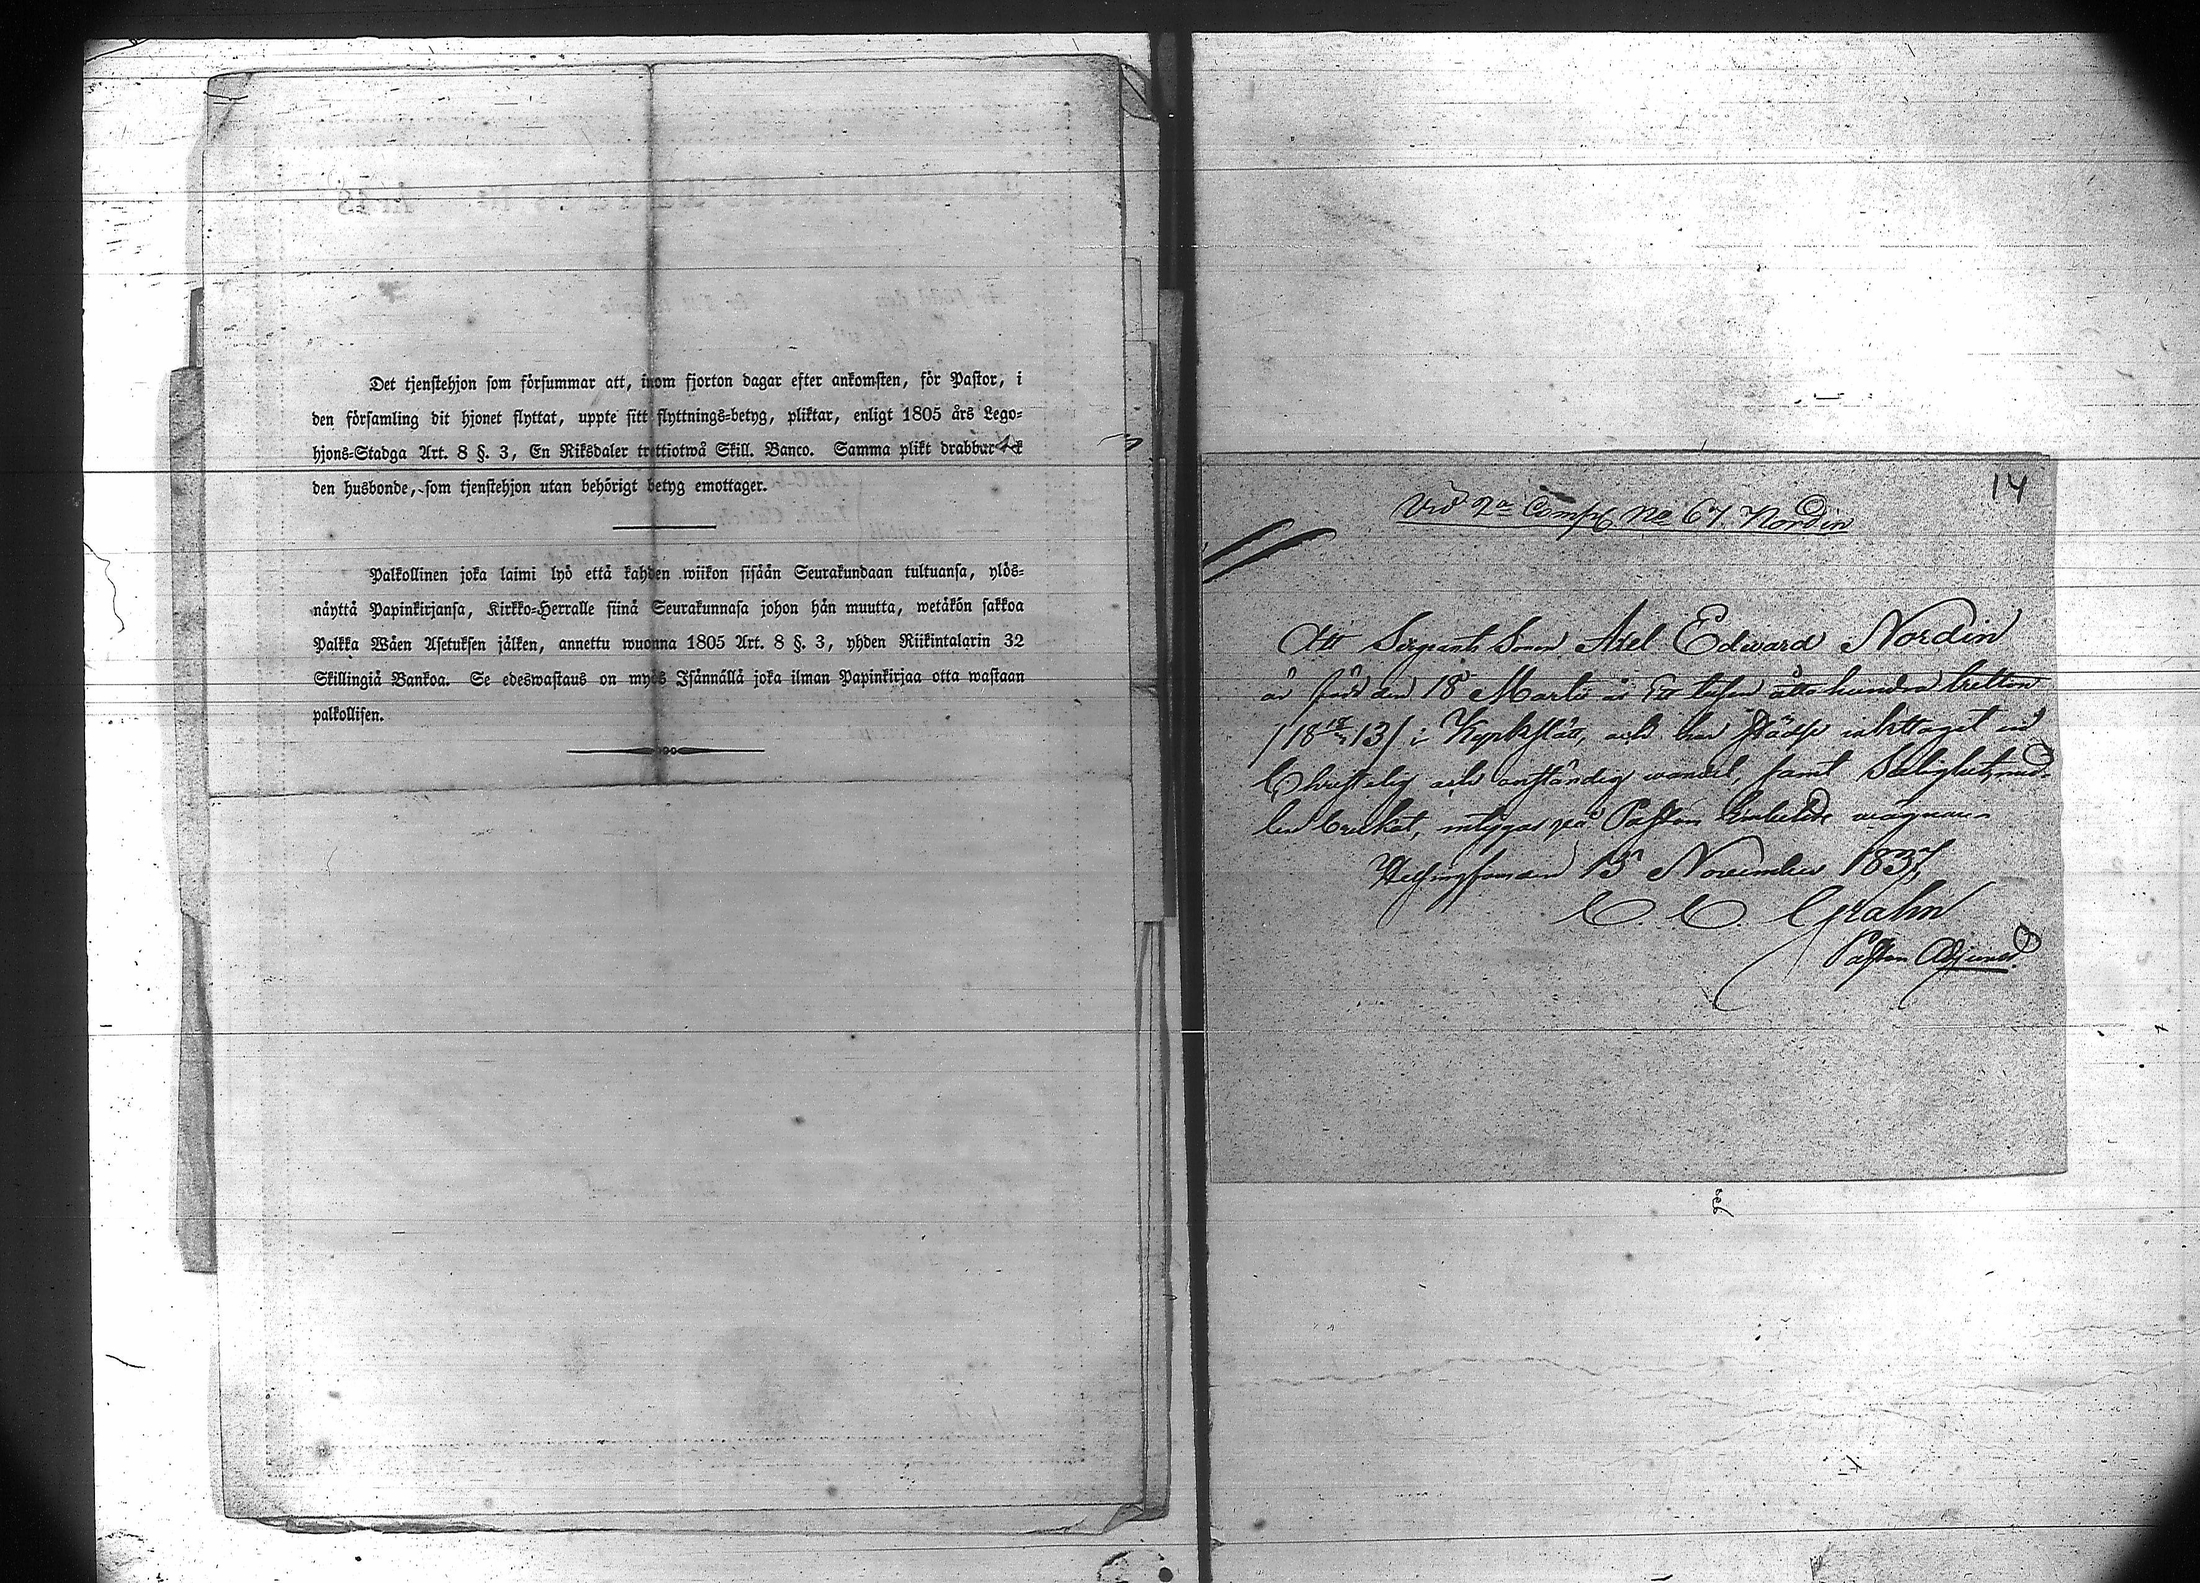 Det tjenstehjon som försummar att, inom fjorton dagar efter ankomsten, för Pastor, i
den församling dit hjonet flyttat, uppte sitt flyttnings=betyg, pliktar, enligt 1805 års Lego=
hjons=Stadga Art. 8 §. 3, En Riksdaler trettiotwå Skill. Banco. Samma plikt drabbar
den husbonde, som tjenstehjon utan behörigt betyg emottager.
Palkollinen joka laimi lyö että kahden wiikon sisään Seurakundaan tultuansa, ylös=
näyttä Papinkirjansa, Kirkko=Herralle siinä Seurakunnasa johon hän muutta, wetäkön sakkoa
Palkka Wäen Asetuksen jälken, annettu wuonna 1805 Art. 8 §. 3, yhden Riikintalarin 32
Skillingiä Bankoa. Se edeswastaus on myös Isännällä joka ilman Papinkirjaa otta wastaan
palkollisen.
14
Vid 2a Comp No 67 Nordin
Att Sergeants Sonen Axel Edward Nordin
är född den 18 Martii år Ett tusen åtta hundra tretton
/18 18/3 13/ i Kyrkslätt, och har städse iakttagit en
Christelig och anständig wandel, samt Salighetsmed-
len brukat, intygas på Pastors Embetets wägnar
Helsingfors den 15 November 1837,
C. C. Grahn
Pastors Adjunct.